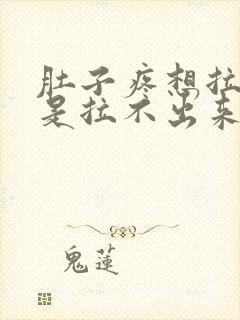 肚子疼想拉
是拉不出来
鬼莲